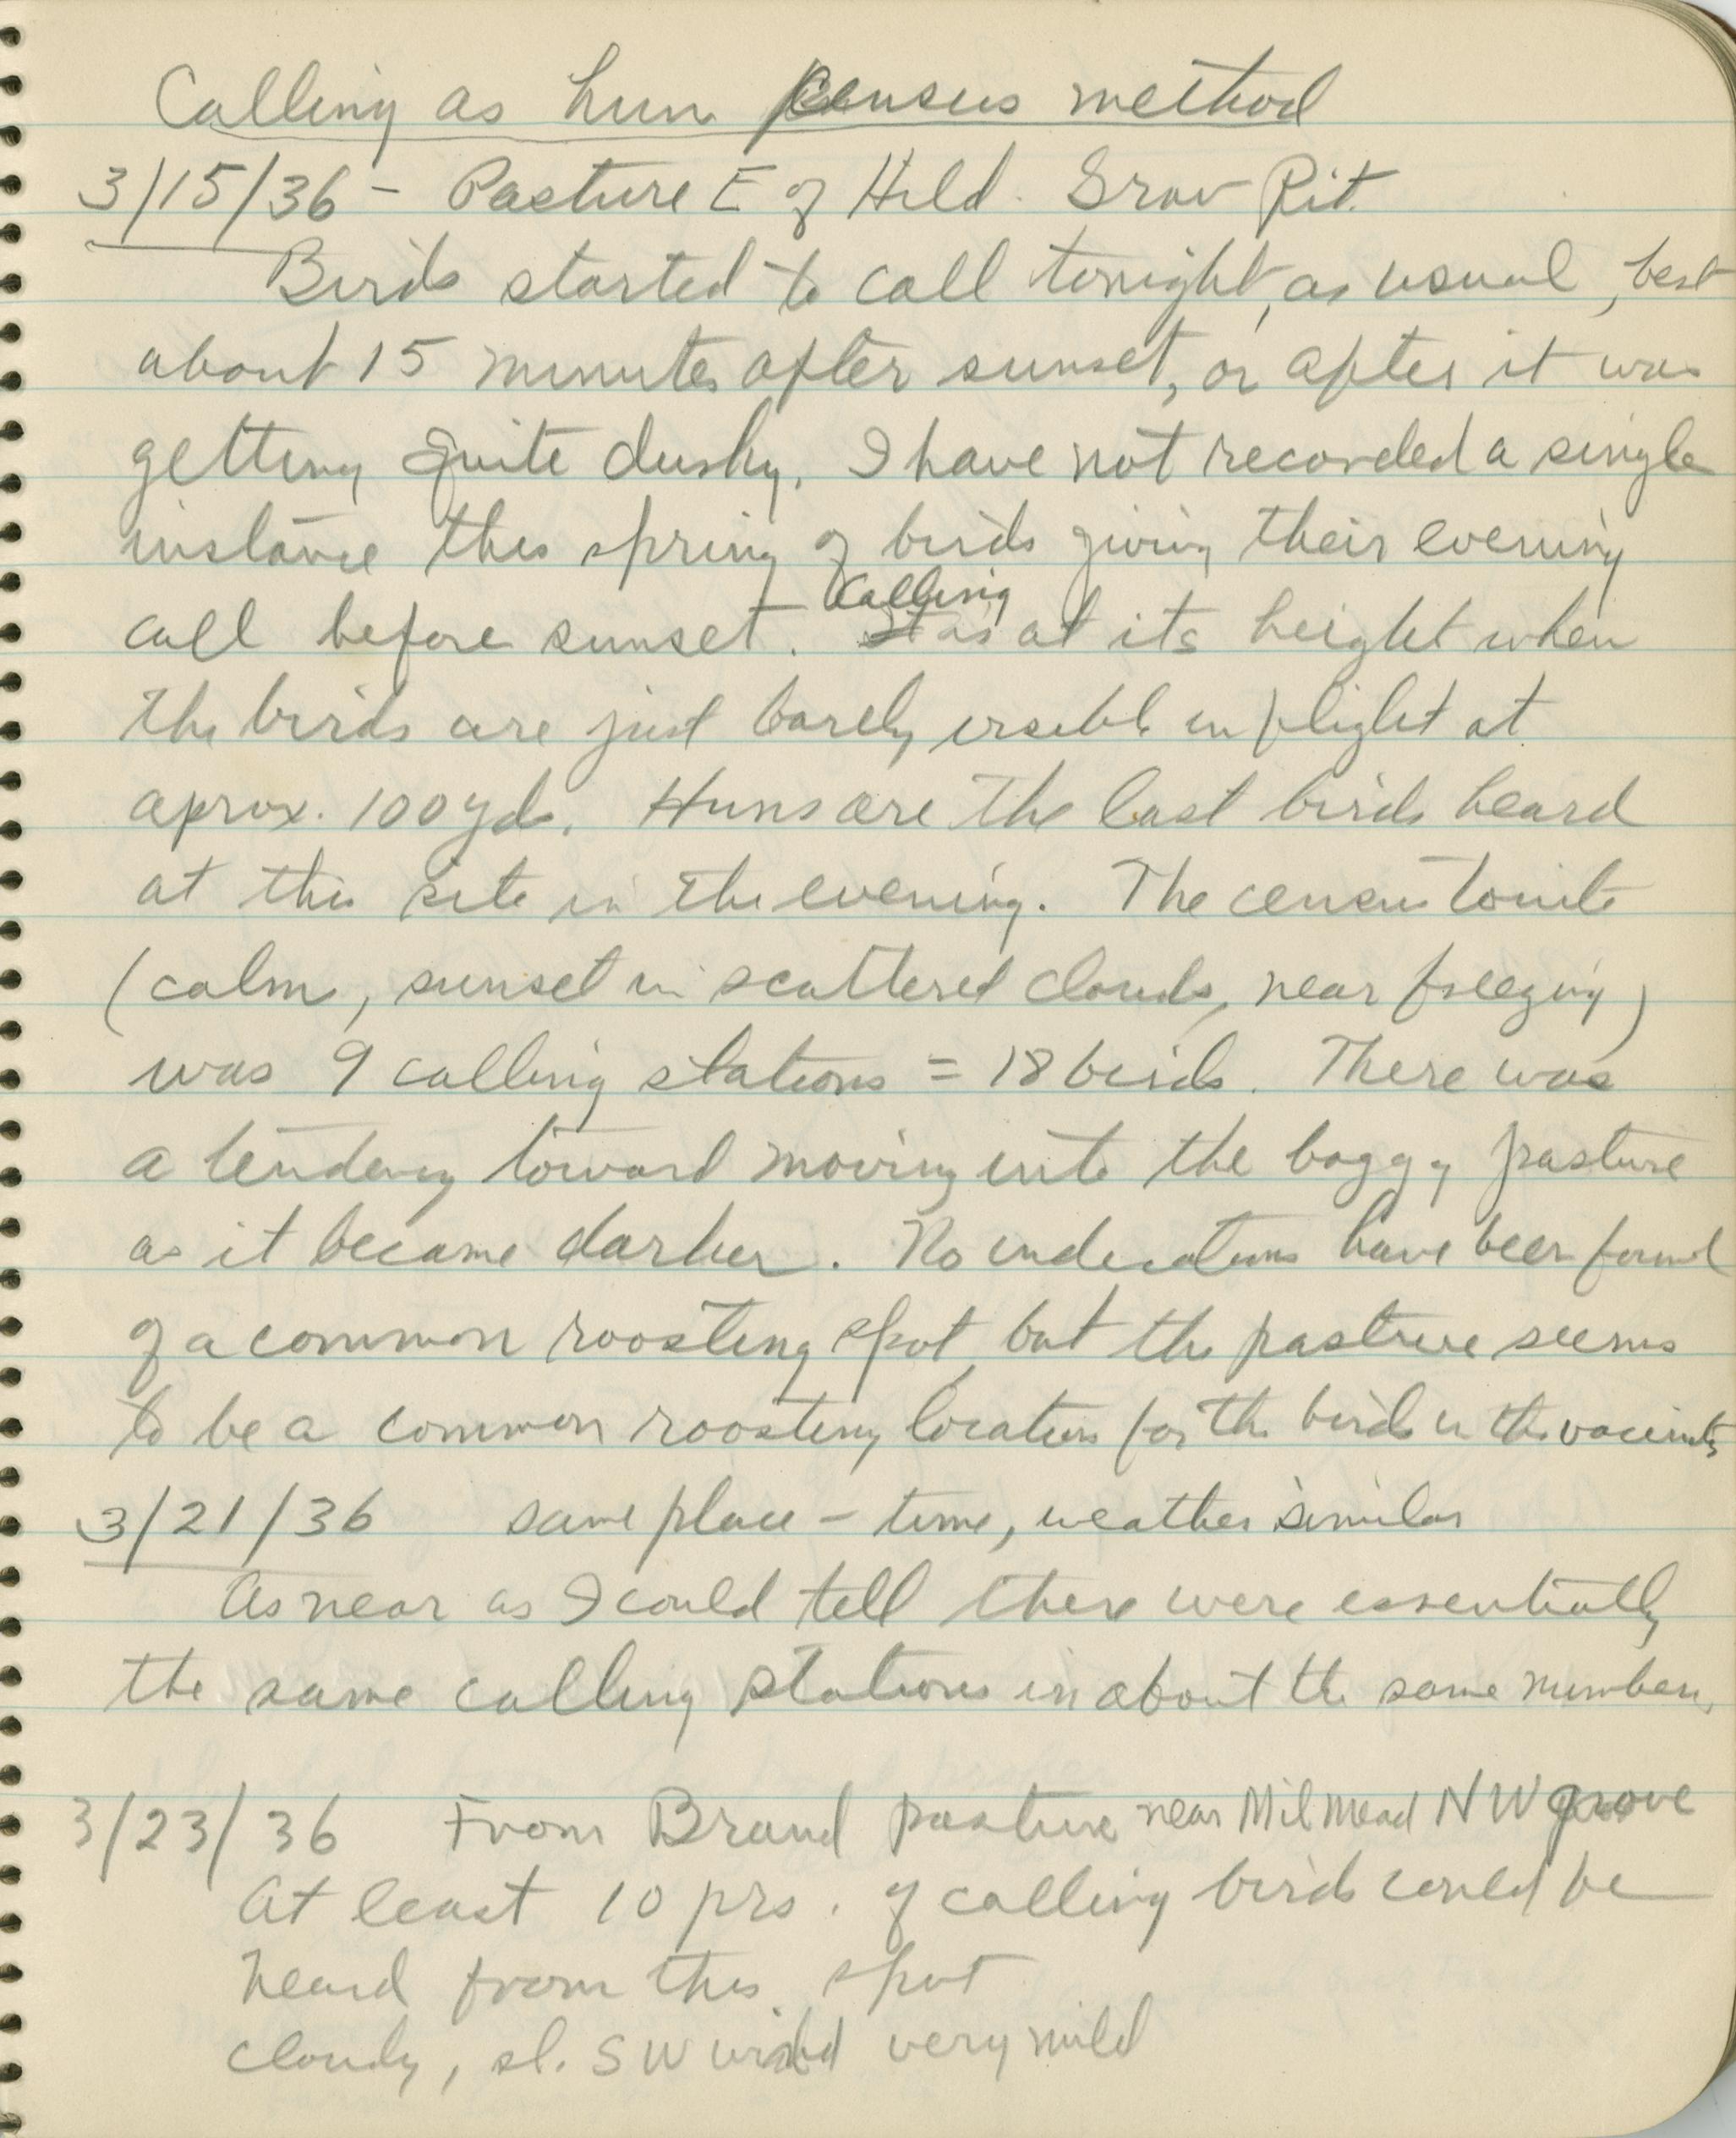 Calling as Hun census method
3/15/36 - Pasture E of Hild. Grav Pit.
Birds started to call tonight, as usual, best
about 15 minutes after sunset, or after it was
getting quite dusky. I have not recorded a single
instance this spring of birds giving their evening
call before sunset. Calling is at its height when
the birds are just barely visible in flight at
aprox. 100 yds. Huns are the last birds heard
at this site in the evening. The census tonite
(calm, sunset in scattered clouds, near freezing)
was 9 calling stations = 18 birds. There was
a tendency toward moving into the boggy pasture
as it became darker. No indications have been found
of a common roosting spot, but the pasture seems
to be a common roosting location for the birds in the vacinity
3/21/36 same place - time, weather similar
As near as I could tell there were essentially
the same calling stations in about the same numbers.
3/23/36 From Brand pasture near Mil Mead NW grove
At least 10 prs. of calling birds could be
heard from this spot
cloudy, sl. SW wind very mild